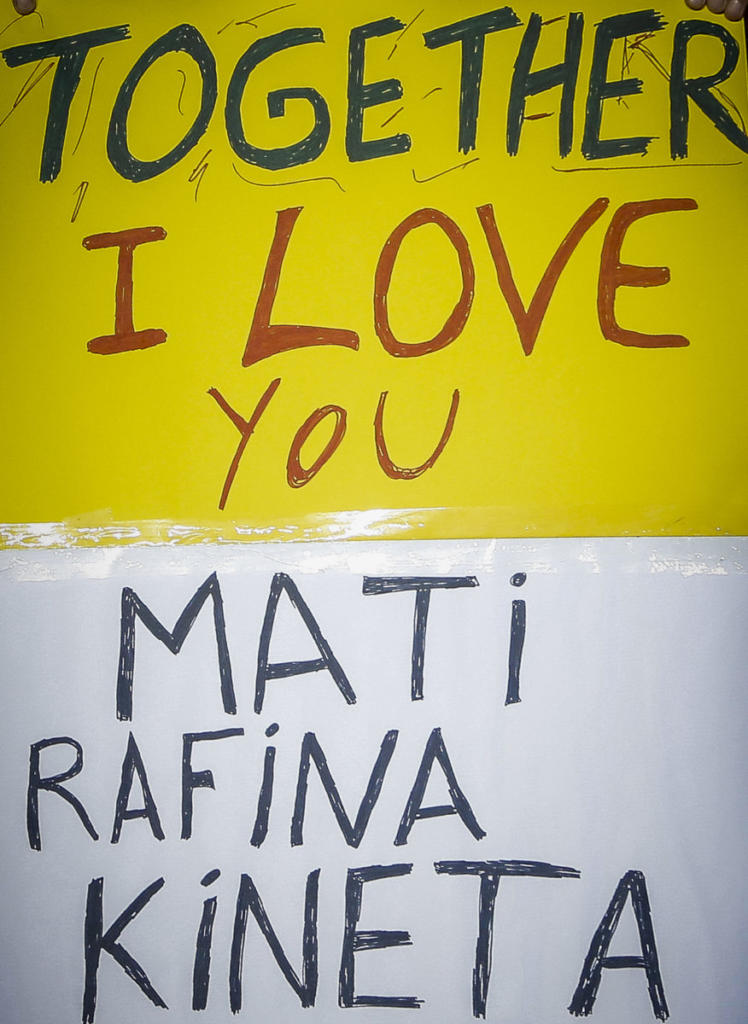 TOGETHER
I LOVE
YOU
MATi
RAFiNA
KiNETA